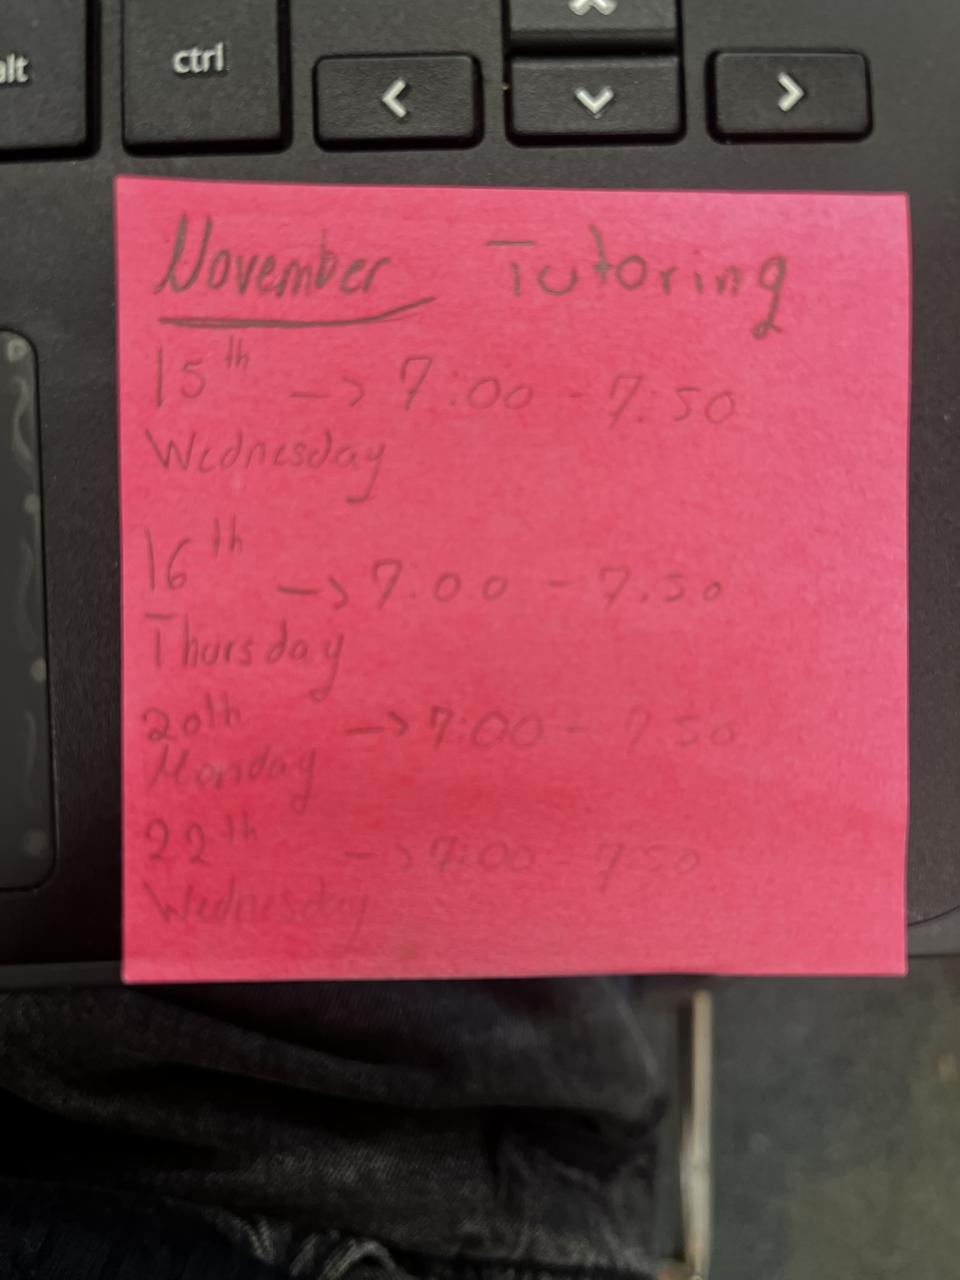 alt
ctrl
November Tutoring
15th -> 7:00 - 7:50
Wednesday
16th -> 7:00 - 7:50
Thursday
20th -> 7:00 - 7:50
Monday
22th -> 7:00 - 7:50
Wednesday